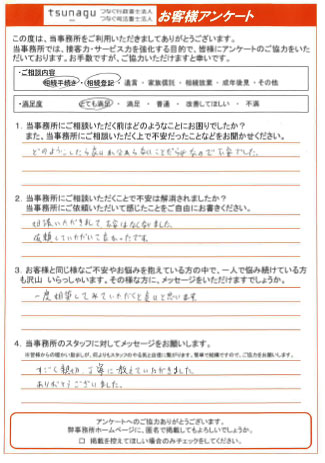 tsunagu
つなぐ行政書士法人
つなぐ司法書士法人
お客様アンケート
この度は、当事務所をご利用いただきましてありがとうございます。
当事務所では、接客力・サービス力を強化する目的で、皆様にアンケートのご協力をいた
だいております。お手数ですが、ご協力いただけますと幸いです。
・ご相談内容
相続手続き ・ 相続登記 ・ 遺言 ・ 家族信託 ・ 相続放棄 ・ 成年後見 ・ その他
・満足度 とても満足 ・ 満足 ・ 普通 ・ 改善してほしい ・ 不満
1．当事務所にご相談いただく前はどのようなことにお困りでしたか？
また、当事務所にご相談いただく上で不安だったことなどをお聞かせください。
どのようにしたら良いかわからないことだらけなので不安でした。
2．当事務所にご相談いただくことで不安は解消されましたか？
当事務所にご依頼いただいて感じたことをご自由にお書きください。
相談いただきまして不安はなくなりました。
依頼していただいて良かったです。
3．お客様と同じ様なご不安やお悩みを抱えている方の中で、一人で悩み続けている方
も沢山 いらっしゃいます。その様な方に、メッセージをいただけますでしょうか。
一度相談してみていただくと良いと思います
4．当事務所のスタッフに対してメッセージをお願いします。
※皆様からの暖かい励ましが、何よりもスタッフのやる気と自信に繋がります。簡単で結構ですので、ご協力をお願いします。
すごく親切、丁寧に教えていただきました
ありがとうございました。
アンケートへのご協力ありがとうございます。
弊事務所ホームページに、匿名で掲載してもよろしいでしょうか。
□ 掲載を控えてほしい場合のみチェックをしてください。